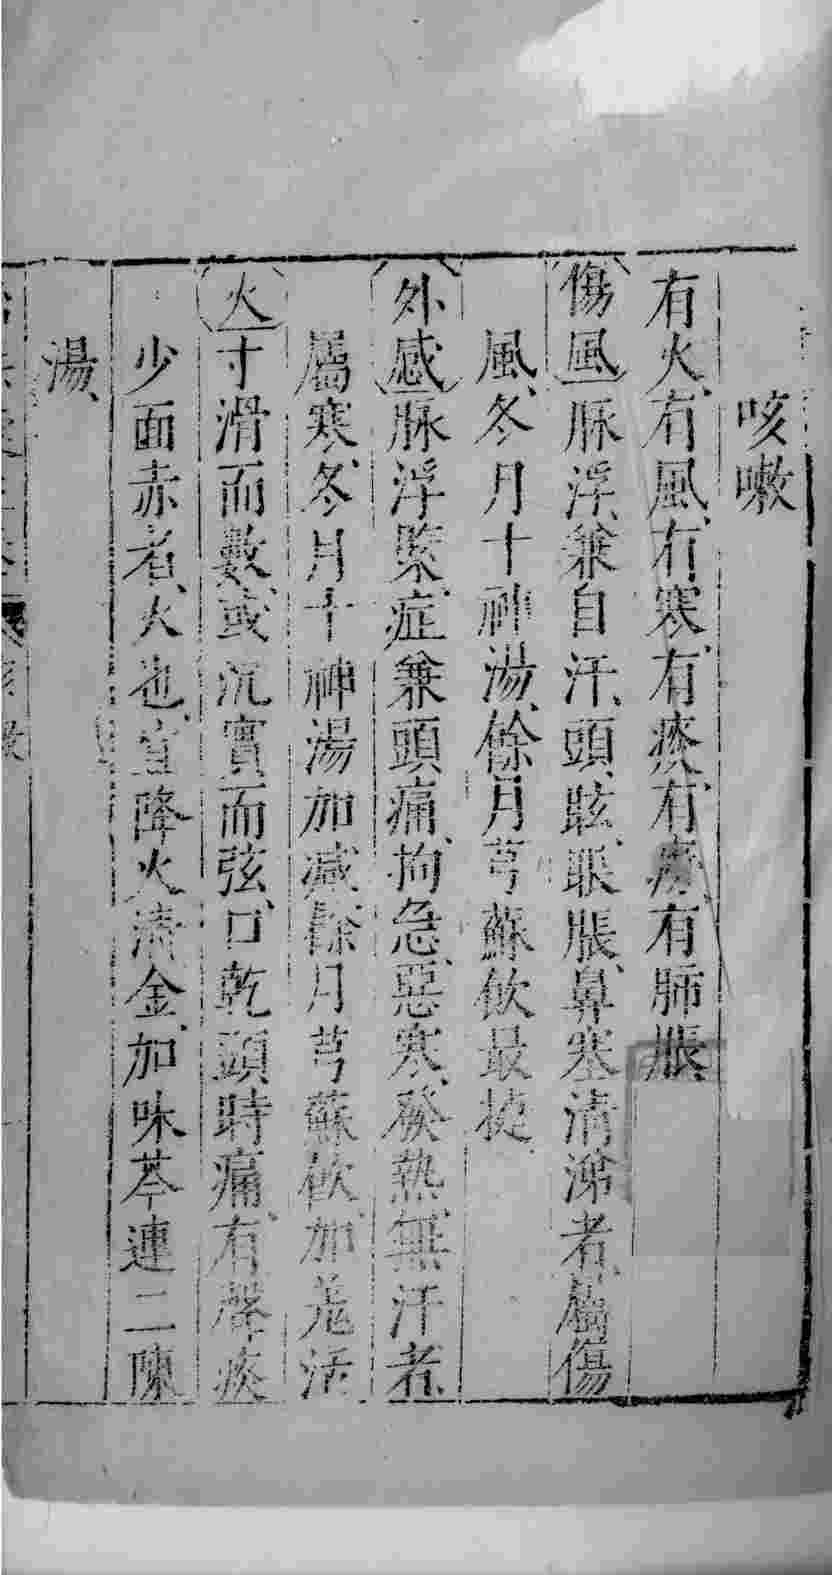 咳嗽
有火、有風、有寒、有痰、有療、有肺脹、
傷風脉浮、兼自汗、頭眩、眼脹、鼻塞清涕者、屬傷
風、冬月十神湯、餘月芎蘇飲最捷
外感脉浮緊、症兼頭痛、拘急、惡寒、發熱、無汗者、
屬寒、冬月十神湯加減、餘月芎蘇飲、加羌活
火寸滑而數、或沉實而弦、口乾頭時痛、有聲痰
少面赤者、火也、宜降火清金、加味芩連二陳
湯、